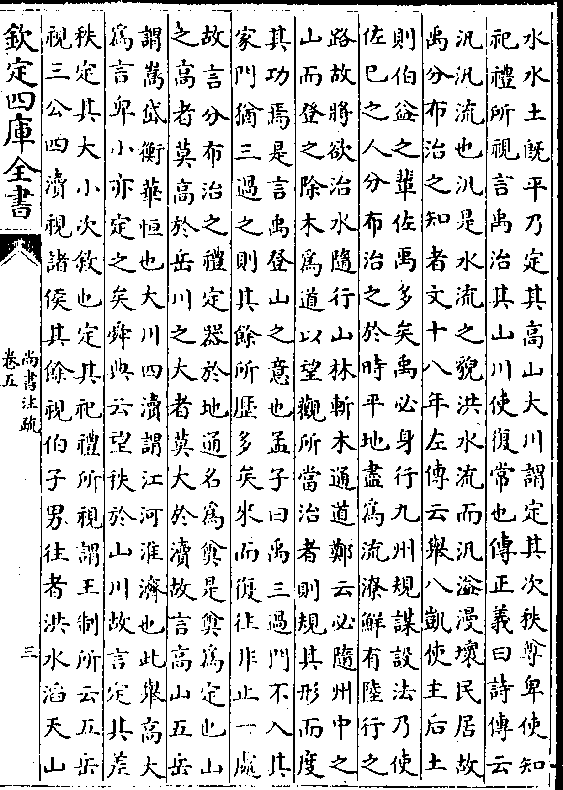 水水土既平乃定其高山大川謂定其次秩尊卑使知
祀禮所視言禹治其山川使復常也傳正義曰詩傳云
汎汎流也汎是水流之貌洪水流而汎溢漫壞民居故
禹分布治之知者文十八年左傳云舉八凱使主后土
則伯益之輩佐禹多矣禹必身行九州規謀設法乃使
佐巳之人分布治之於時平地盡爲流潦鮮有陸行之
路故將欲治水隨行山林斬木通道鄭云必隨州中之
山而登之除木爲道以望觀所當治者則規其形而度
其功焉是言禹登山之意也孟子曰禹三過門不入其
家門猶三過之則其餘所歷多矣來而復往非止一處
故言分布治之禮定器於地通名爲奠是奠爲定也山
之高者莫高於岳川之大者莫大於瀆故言高山五岳
謂嵩岱衡華恒也大川四瀆謂江河淮濟也此舉高大
爲言卑小亦定之矣舜典云望秩於山川故言定其差
秩定其大小次敘也定其祀禮所視謂王制所云五岳
視三公四瀆視諸侯其餘視伯子男往者洪水滔天山
欽定四庫全書
尚書注疏
卷五
三